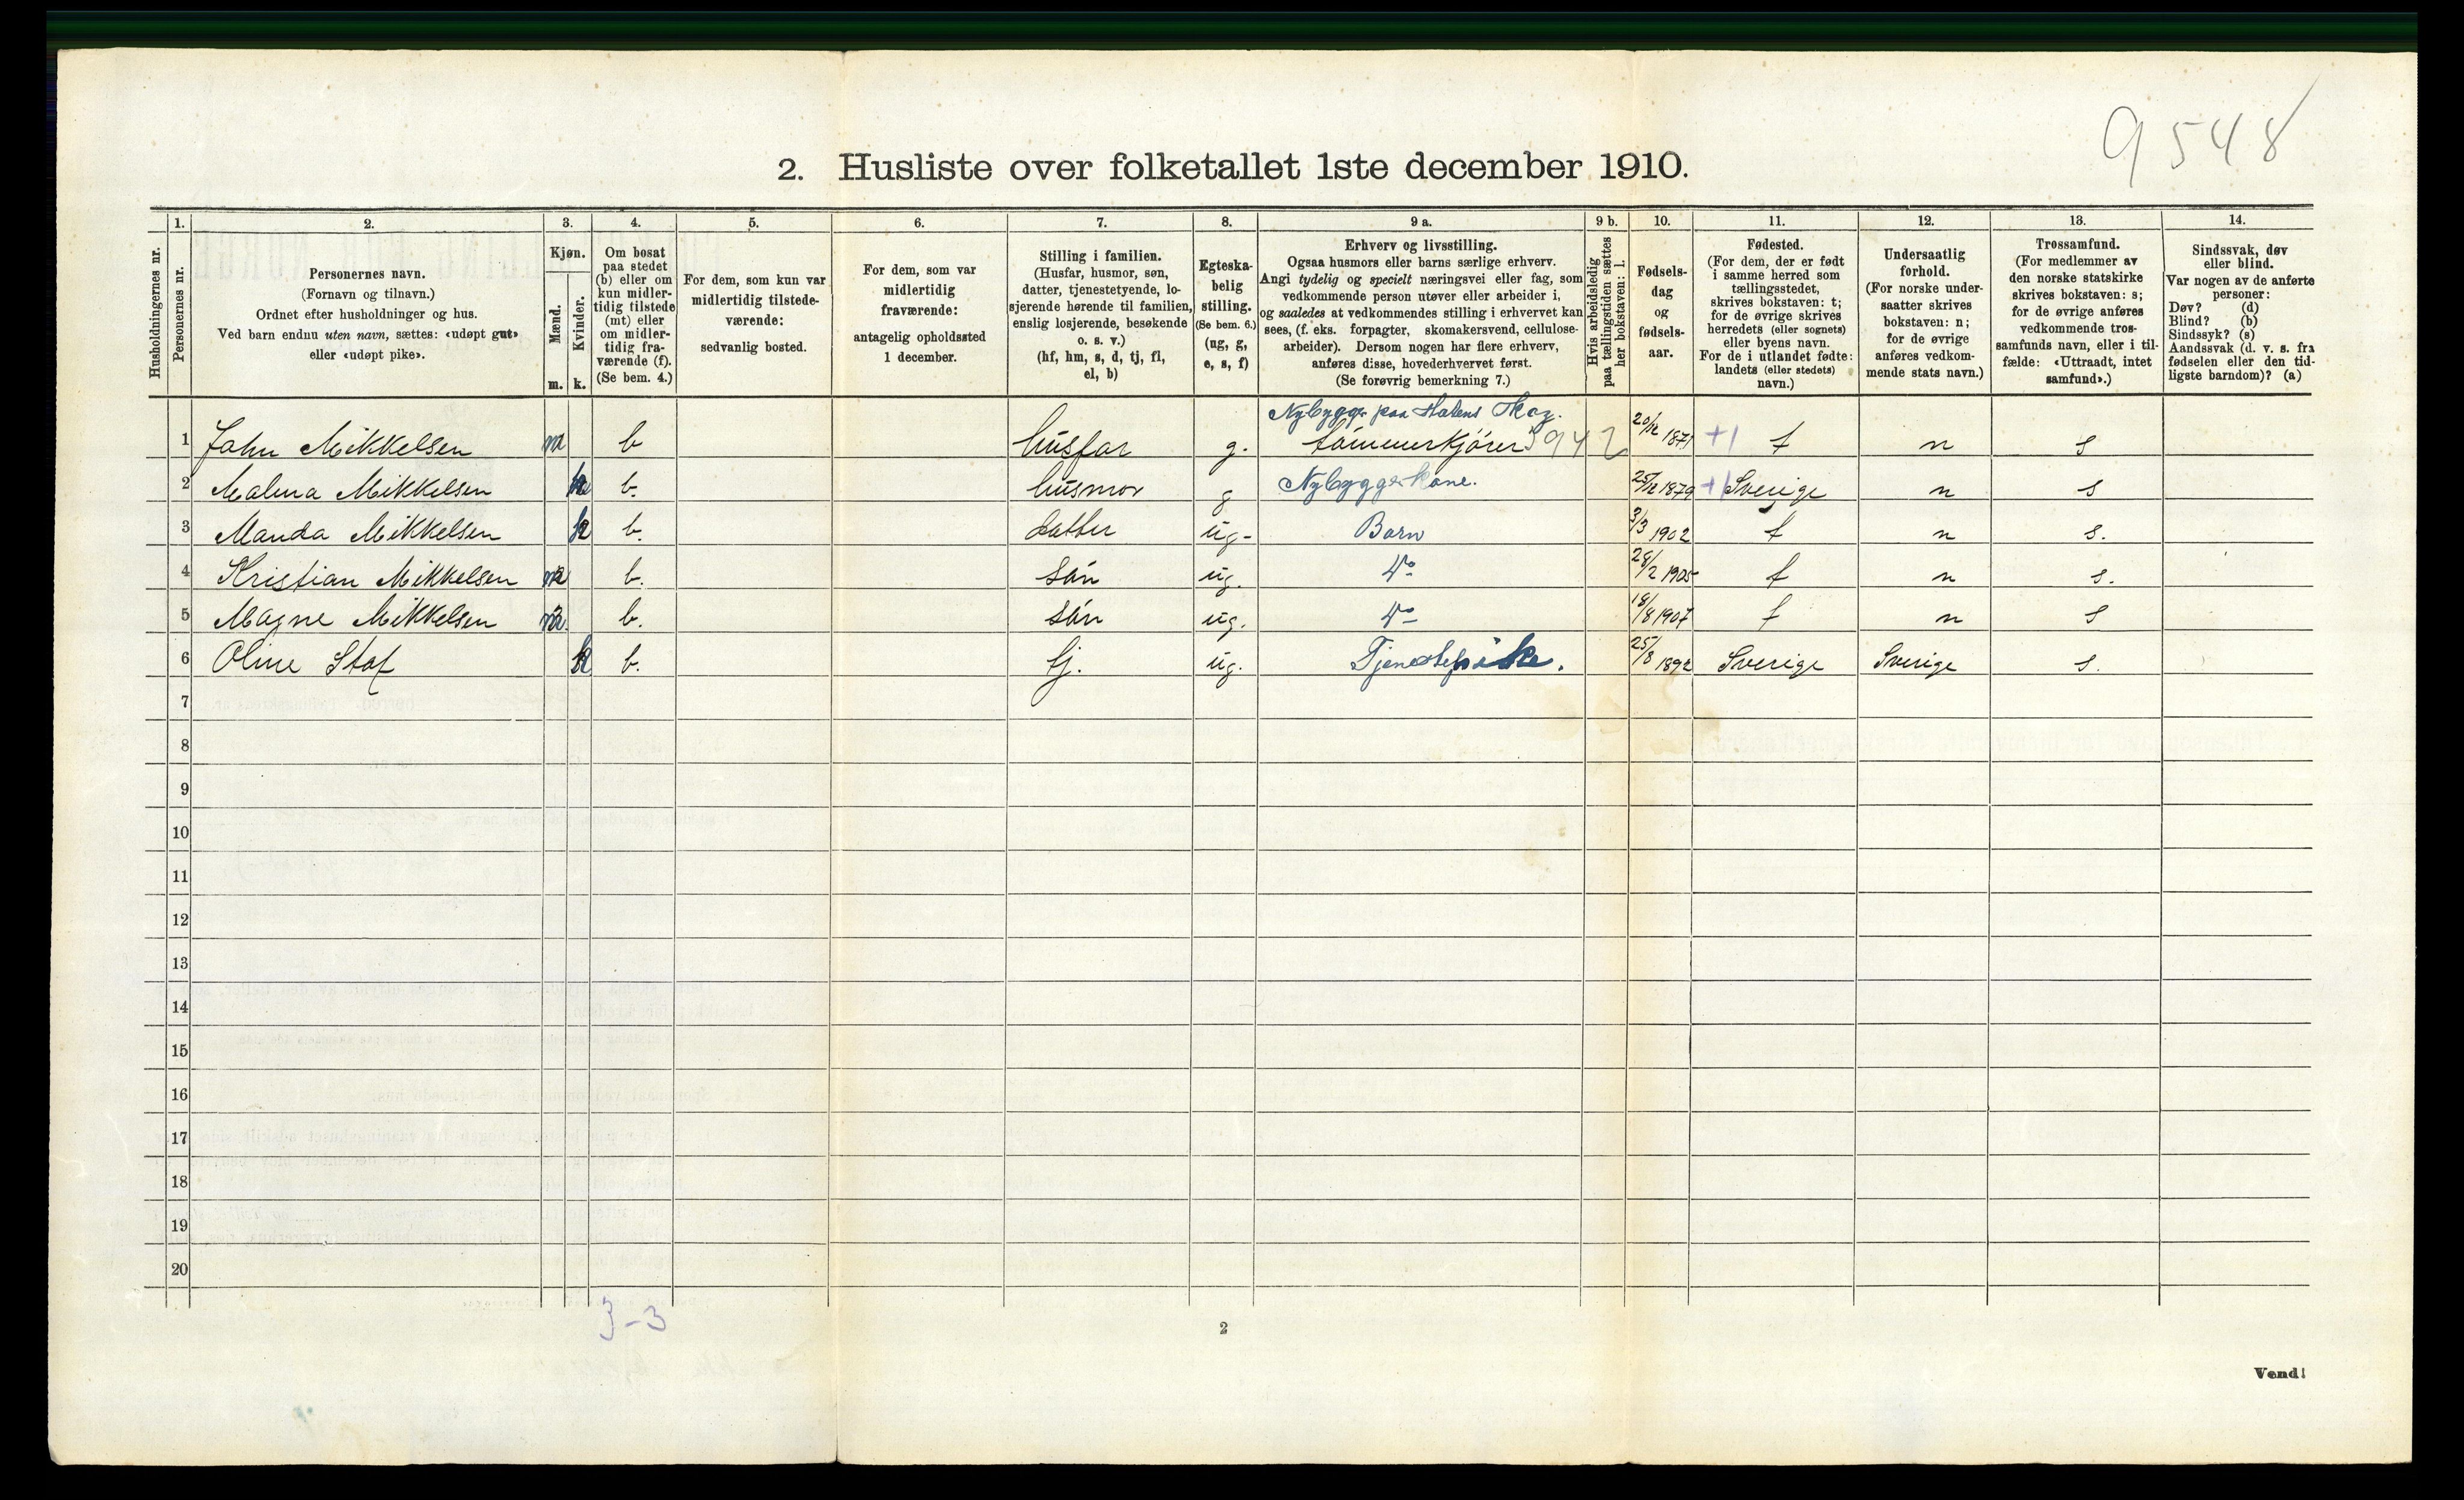 9548
2. Husliste over folketallet 1ste december 1910.
Husholdningernes nr.
1.
Personernes nr.
2.
Personernes navn.
(Fornavn og tilnavn.)
Ordnet efter husholdninger og hus.
Ved barn endnu uten navn, sættes: «udøpt gut»
eller «udøpt pike».
3.
Kjøn.
Mænd.
Kvinder.
m. k.
4.
Om bosat
paa stedet
(b) eller om
kun midler-
tidig tilstede
(mt) eller
om midler-
tidig fra-
værende (f).
(Se bem. 4.)
5.
For dem, som kun var
midlertidig tilstede-
værende:
sedvanlig bosted.
6.
For dem, som var
midlertidig
fraværende:
antagelig opholdssted
1 december.
7.
Stilling i familien.
(Husfar, husmor, søn,
datter, tjenestetyende, lo-
sjerende hørende til familien,
enslig losjerende, besøkende
o. s. v.)
(hf, hm, s, d, tj, fl,
el, b)
8.
Egteska-
belig
stilling.
(Se bem. 6.)
(ug, g,
e, s, f)
9 a.
Erhverv og livsstilling.
Ogsaa husmors eller barns særlige erhverv.
Angi tydelig og specielt næringsvei eller fag, som
vedkommende person utøver eller arbeider i,
og saaledes at vedkommendes stilling i erhvervet kan
sees, (f. eks. forpagter, skomakersvend, cellulose-
arbeider). Dersom nogen har flere erhverv,
anføres disse, hovederhvervet først.
(Se forøvrig bemerkning 7.)
9 b.
Hvis arbeidsledig
paa tællingstiden sættes
her bokstaven: l.
10.
Fødsels-
dag
og
fødsels-
aar.
11.
Fødested.
(For dem, der er født
i samme herred som
tællingsstedet,
skrives bokstaven: t;
for de øvrige skrives
herredets (eller sognets)
eller byens navn.
For de i utlandet fødte:
landets (eller stedets)
navn.)
12.
Undersaatlig
forhold.
(For norske under-
saatter skrives
bokstaven: n;
for de øvrige
anføres vedkom-
mende stats navn.)
13.
Trossamfund.
(For medlemmer av
den norske statskirke
skrives bokstaven: s;
for de øvrige anføres
vedkommende tros-
samfunds navn, eller i til-
fælde: «Uttraadt, intet
samfund».)
14.
Sindssvak, døv
eller blind.
Var nogen av de anførte
personer:
Døv? (d)
Blind? (b)
Sindssyk? (s)
Aandssvak (d. v. s. fra
fødselen eller den tid-
ligste barndom)? (a)
Nybygger paa Statens Skog.
1 John Mikkelsen m b husfar g. tømmerkjører 5942 20/12 1871 +1 t n s
2 Malena Mikkelsen k b. husmor g Nybyggerkone. 25/12 1879 +1 Sverige n s
3 Manda Mikkelsen k b. datter ug- Barn 3/3 1902 t n s.
4 Kristian Mikkelsen m b. søn ug. do 28/2 1905 t n s.
5 Magne Mikkelsen m. b. søn ug. do 18/8 1907 t n s
6 Oline Staf k b. tj. ug. Tjenestepike. 25/8 1892 Sverige Sverige s.
7
8
9
10
11
12
13
14
15
16
17
18
19
20
3-3
2
Vend!